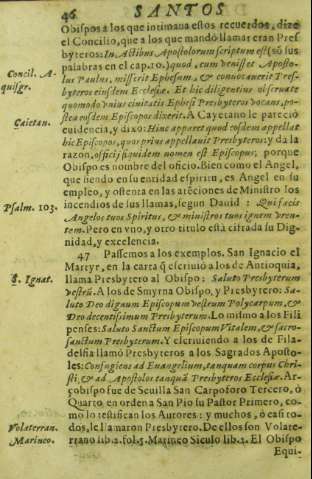 46 SANTOS
Obispos a los que intimaua estos recuerdos, dize
el Concilio, que a los que mandò llamar eran Pres-
byteros: In Actibus Apostolorum scriptum est (sõ sus
palabras en el cap.10.) quod, cum venisset Aposto-
Concil. A-
quisgr.
lus Paulus, misserit Ephesum, & conuocauerit Pres-
byteros eiusdem Ecclesiæ. Et hic diligentius obseruate
quomodo vnius ciuitatis Ephesi Presbyteros vocans, pos-
tea eosdem Episcopos dixerit. A Cayetano le pareciò
Caietan.
euidencia, y dixo: Hinc apparet quod eosdem appellat
hic Episcopos, quos prius appellauit Presbyteros: y dà la
razon, officij siquidem nomen est Episcopus; porque
Obispo es nombre del oficio. Bien como el Angel,
que siendo en su entidad espiritu, es Angel en su
empleo, y ostenta en las atẽciones de Ministro los
Psalm. 103.
incendios de sus llamas, segun Dauid: Qui facis
Angelos tuos Spiritus, & ministros tuos ignem vren-
tem. Pero en vno, y otro titulo està cifrada su Dig-
nidad, y excelencia.
47 Passemos a los exemplos. San Ignacio el
Martyr, en la carta q̃ escriuiò a los de Antioquia,
S. Ignat.
llama Presbytero al Obispo: Saluto Presbyterum
vestrũ. A los de Smyrna Obispo, y Presbytero: Sa-
luto Deo dignum Episcopum vestrum Polycarpum, &
Deo decentissimum Presbyterum. Lo mismo a los Fili
penses: Saluto Sanctum Episcopum Vitalem, & sacro-
sanctum Presbyterum. Y escriuiendo a los de Fila-
delfia llamò Presbyteros a los Sagrados Aposto-
les: Confugiens ad Euangelium, tanquam corpus Chris-
ti; & ad Apostolos tanquã Presbyteros Ecclesiæ. Ar-
çobispo fue de Seuilla San Carpoforo Tercero, ò
Quarto en orden a San Pio su Pastor Primero, co-
mo lo testifican los Autores: y muchos, ò casi to-
Volaterran.
Marineo.
dos, le llamaron Presbytero. De ellos son Volate-
rrano lib.2. fol.5. Marineo Siculo lib.2. El Obispo
Equi-